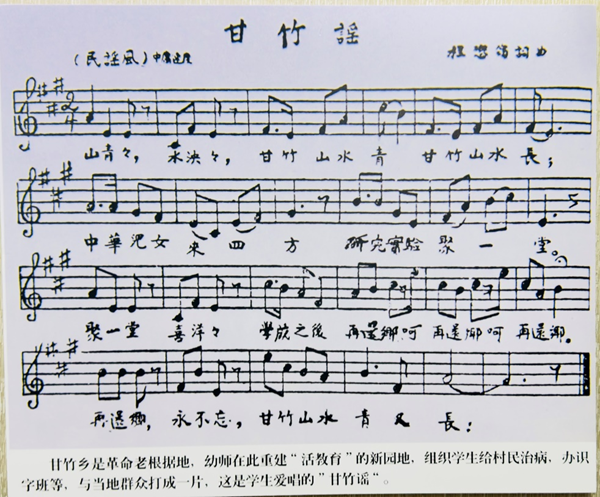 甘竹謡
（民謡風）中庸速度
程懋筠詞曲
2/4
山青々，水泱々，甘竹山水青 甘竹山水長；
中華兒女來四方 研究實驗聚一堂。
聚一堂 喜洋々 學成之後 再還鄉呵 再還鄉呵 再還鄉。
再還鄉，永不忘，甘竹山水青又長；
甘竹乡是革命老根据地，幼师在此重建“活教育”的新园地，组织学生给村民治病，办识
字班等，与当地群众打成一片，这是学生爱唱的“甘竹谣”。